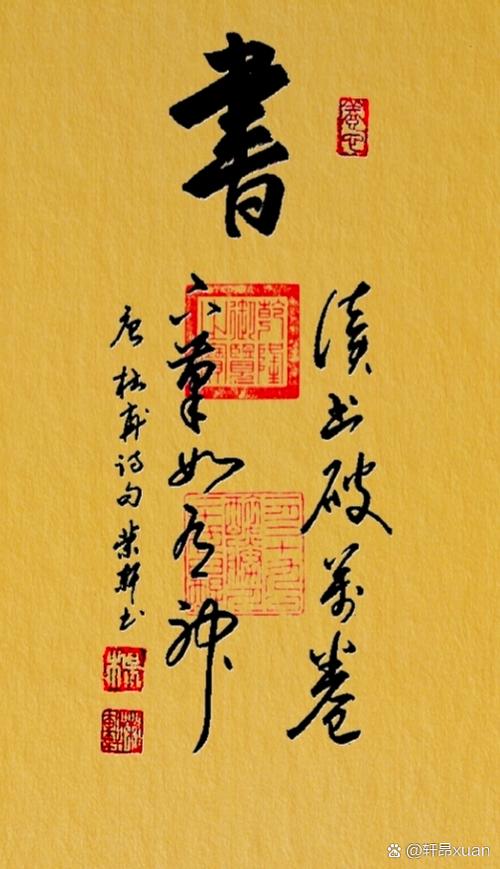 書
读书破萬卷
下筆如有神
唐杜甫诗句荣轩书
乾隆御覽之寶
@轩昂xuan